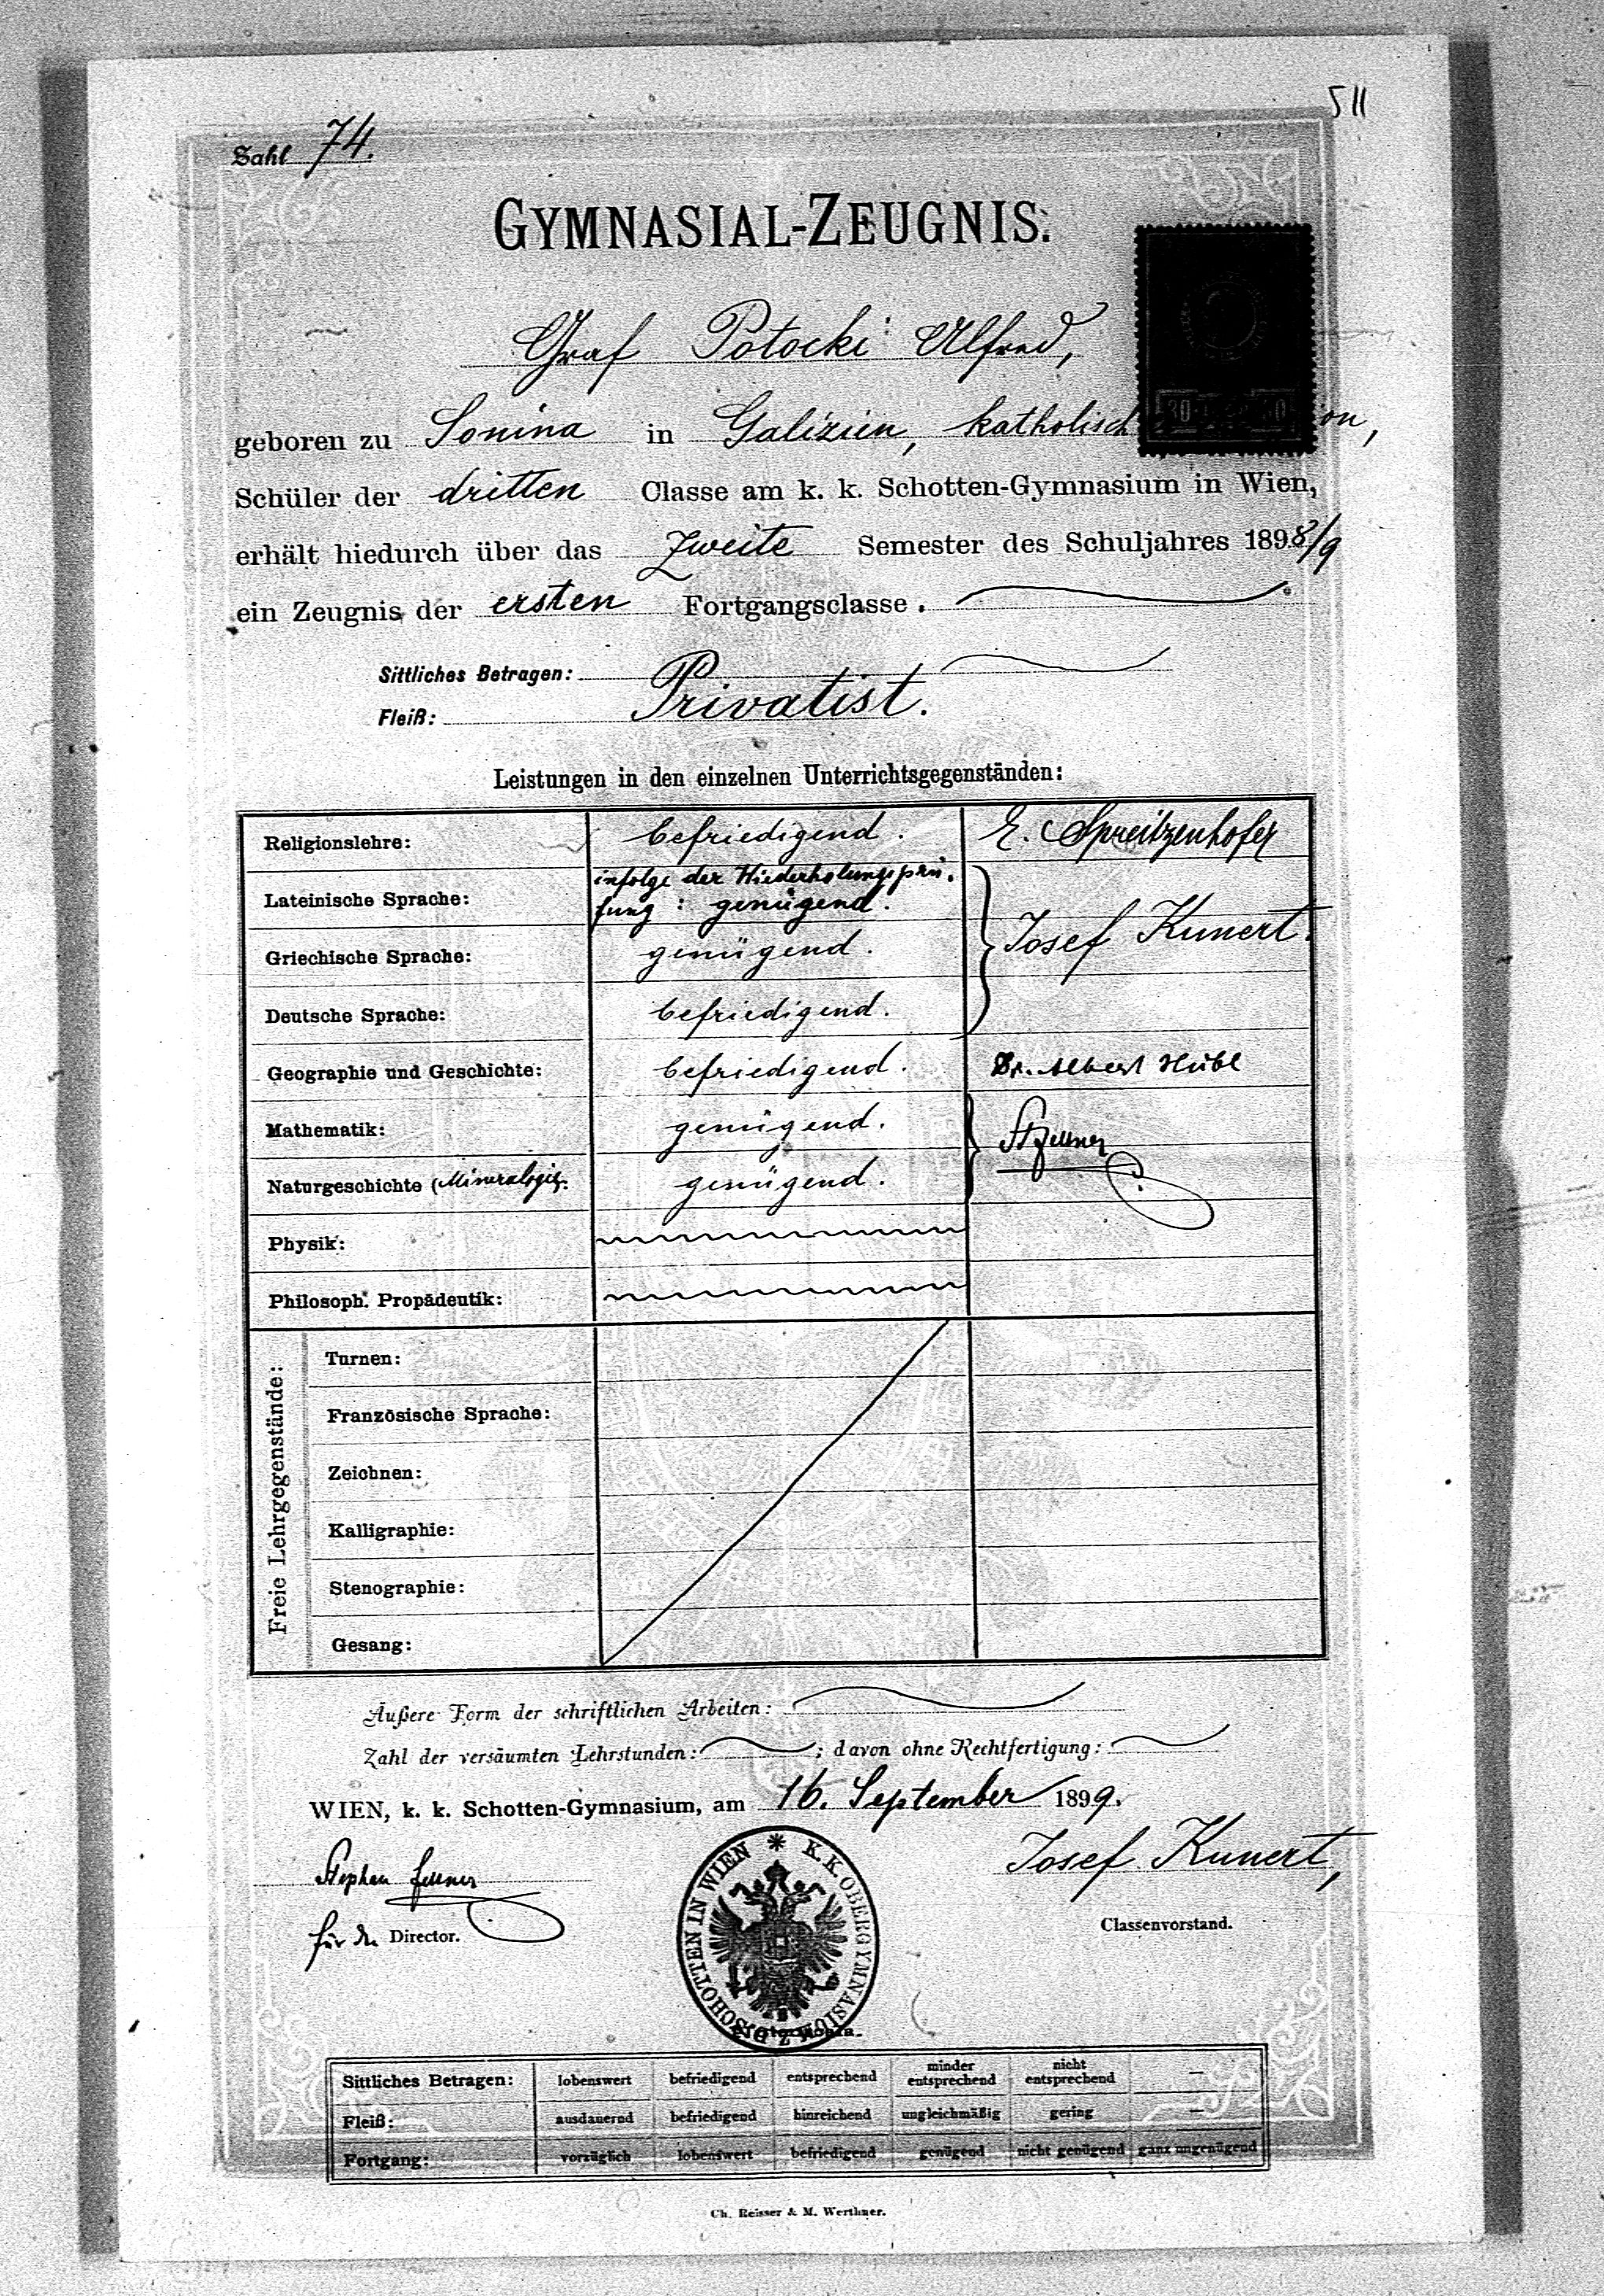 511
Zahl 74.
GYMNASIAL-ZEUGNIS.
Graf Potocki Alfred,
geboren zu Sonina in Galizien, katholisch on,
Schüler der dritten Classe am k. k. Schotten-Gymnasium in Wien,
erhält hiedurch über das zweite Semester des Schuljahres 1898/9
ein Zeugnis der ersten Fortgangsclasse.
Sittliches Betragen:
Fleiß: Privatist.
Leistungen in den einzelnen Unterrichtsgegenständen:
Religionslehre: befriedigend. E. Spreitzenhofer
Lateinische Sprache: infolge der Wiederholungsprü-
fung: genügend.
Josef Kunert.
Griechische Sprache: genügend.
Deutsche Sprache: befriedigend.
Geographie und Geschichte: befriedigend. Dr. Albert Hübl
Mathematik: genügend. StFellner
Naturgeschichte (Mineralogie: genügend.
Physik:
Philosoph. Propädeutik:
Freie Lehrgegenstände:
Turnen:
Französische Sprache:
Zeichnen:
Kalligraphie:
Stenographie:
Gesang:
Äußere Form der schriftlichen Arbeiten:
Zahl der versäumten Lehrstunden: ; davon ohne Rechtfertigung:
WIEN, k. k. Schotten-Gymnasium, am 16. September 1899.
Stephan Fellner Josef Kunert,
für den Director. Classenvorstand.
K. K. OBERGYMNASIUM Z. D. SCHOTTEN IN WIEN
Sittliches Betragen: lobenswert befriedigend entsprechend minder entsprechend nicht entsprechend —
Fleiß: ausdauernd befriedigend hinreichend ungleichmäßig gering —
Fortgang: vorzüglich lobenswert befriedigend genügend nicht genügend ganz ungenügend
Ch. Reisser & M. Werthner.